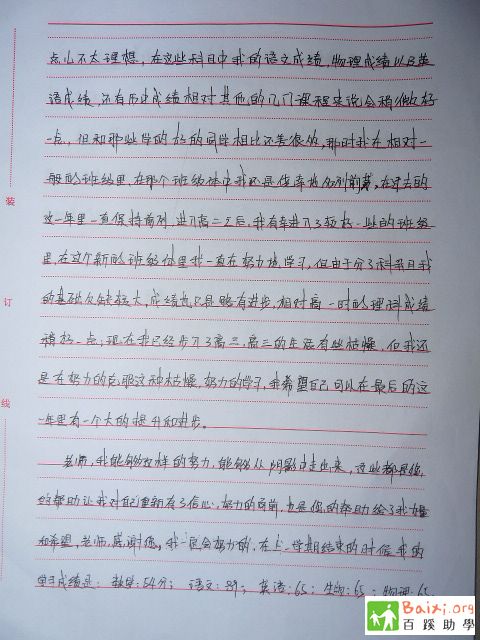 点儿不太理想，在这些科目中我的语文成绩，物理成绩以及英
语成绩，还有历史成绩相对其他的几门课程来说会稍微好
一点，但和那些学的好的同学相比还差很多，那时我在相对一
般的班级里，在那个班级体中我还是信幸地名列前茅，在过去的
这一年里一直保持前列，进入高二之后，我有幸进入了较好一些的班级
里，在这个新的班级体里我一直在努力地学习，但由于分了科我目我
的基础欠缺较大，成绩也只是略有进步，相对高一时的理科成绩
稍好一点，现在我已经步入了高三，高三的生活有些枯燥，但我还
是在努力的克服这种枯燥，努力的学习，我希望自己可以在最后的这
一年里有一个大的提升和进步。
老师，我能够这样的努力，能够从阴影中走出来，这些都是您
的帮助让我对自己重新有了信心，努力的向前，也是您的帮助给了我力量
和希望，老师，感谢您，我一定会努力的，在上一学期结束的时候我的
成绩是：数学：84分；语文：89；英语：65；生物：65；物理：65；
装
订
线
Baixi.org
百蹊助學